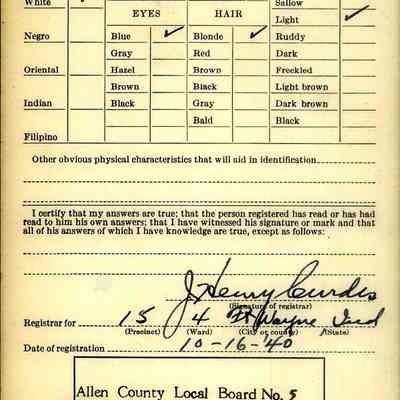 White ✓ Sallow
EYES HAIR Light ✓
Negro Blue ✓ Blonde ✓ Ruddy
Gray Red Dark
Oriental Hazel Brown Freckled
Brown Black Light brown
Indian Black Gray Dark brown
Bald Black
Filipino
Other obvious physical characteristics that will aid in identification
I certify that my answers are true; that the person registered has read or has had
read to him his own answers; that I have witnessed his signature or mark and that
all of his answers of which I have knowledge are true, except as follows:
J. Henry Gerdes
(Signature of registrar)
Registrar for 15 4 Ft Wayne Ind
(Precinct) (Ward) (City or county) (State)
Date of registration 10-16-40
Allen County Local Board No. 5